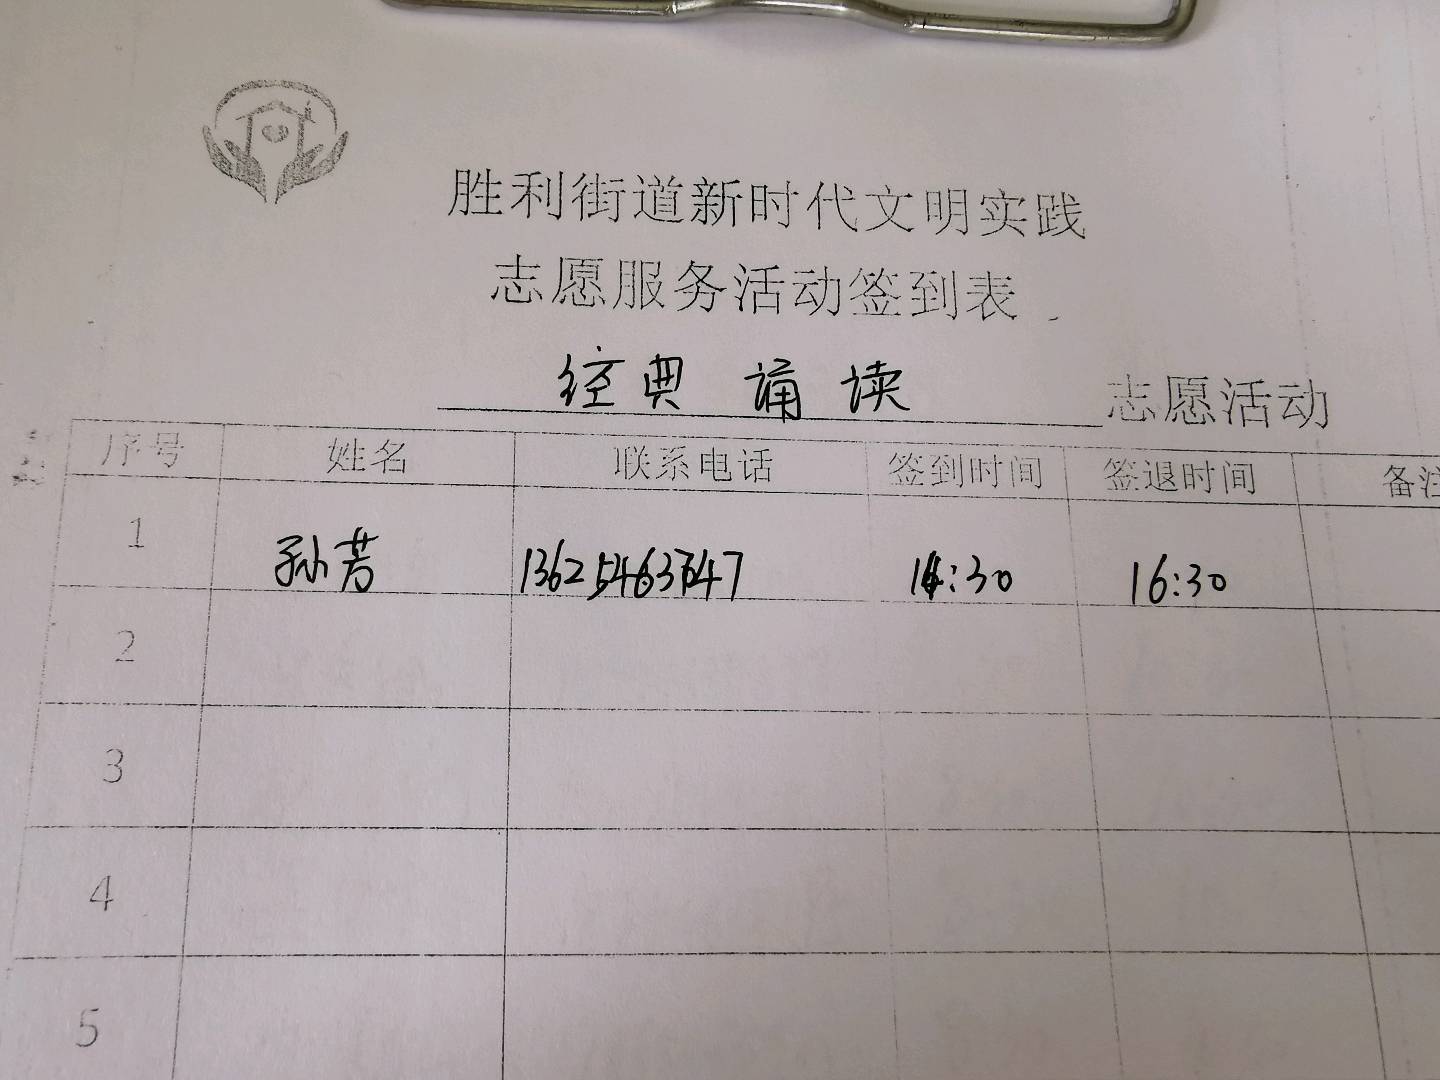 胜利街道新时代文明实践
志愿服务活动签到表
经典诵读 志愿活动
序号 姓名 联系电话 签到时间 签退时间 备注
1 孙芳 13625463747 14:30 16:30
2
3
4
5